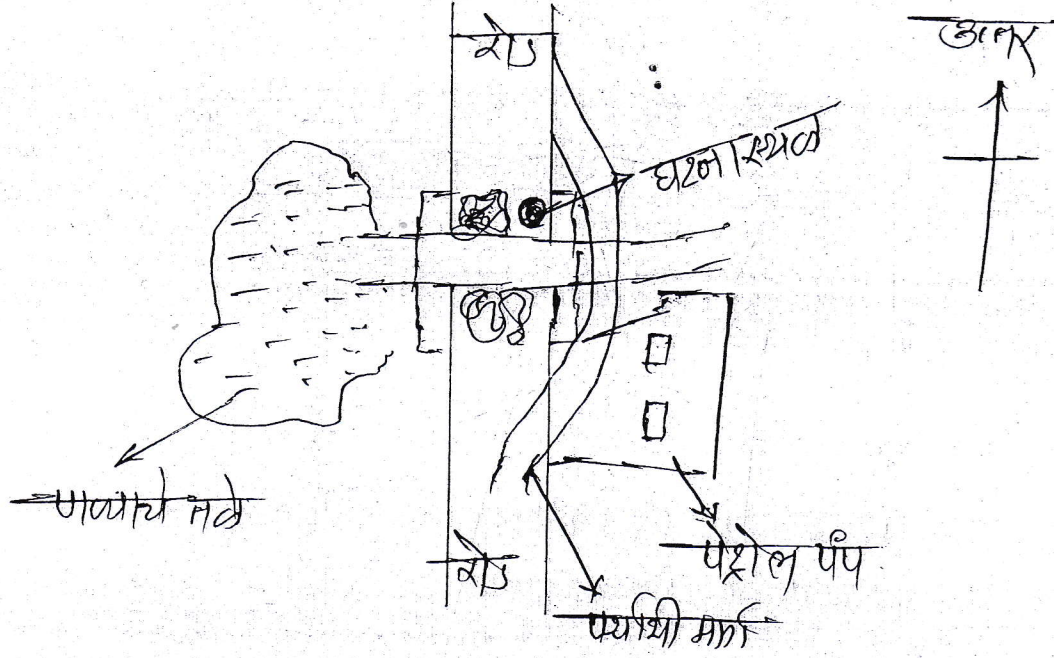 उत्तर
रोड
घटनास्थळ
पाण्याचे तळे
रोड
पेट्रोल पंप
पर्यायी मार्ग